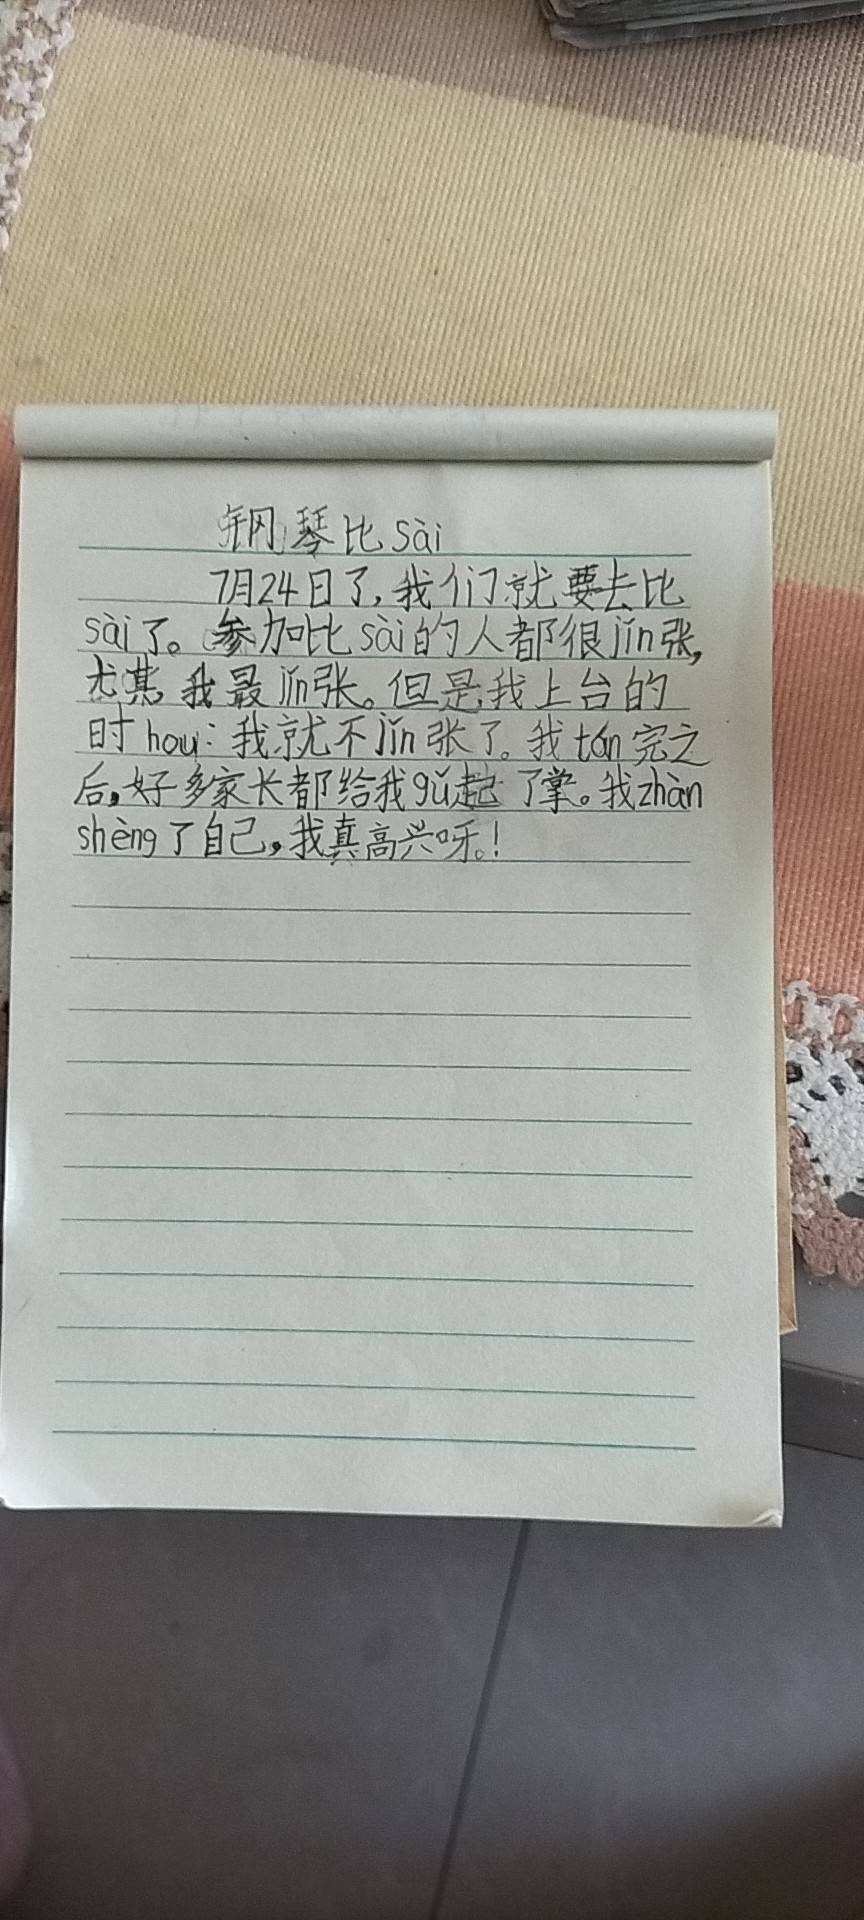 钢琴比sài
7月24日了，我们就要去比
sài了。参加比sài的人都很jǐn张，
尤其我最jǐn张。但是我上台的
时hou：我就不jǐn张了。我tán完之
后，好多家长都给我gǔ起了掌。我zhàn
shèng了自己，我真高兴呀。！